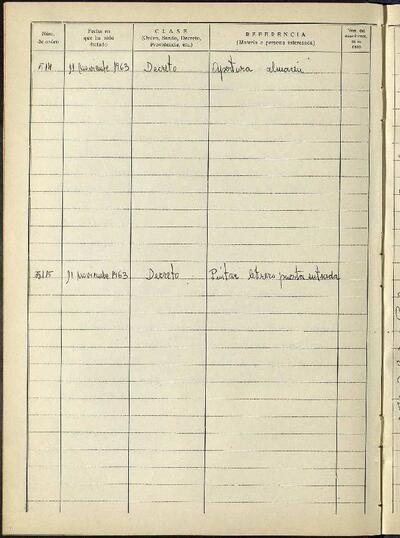 Núm. de orden
Fecha en que ha sido dictado
CLASE
(Orden, Bando, Decreto, Providencia, etc.)
REFERENCIA
(Materia o persona interesada)
11 noviembre 1963 Decreto Apertura almacén
11 noviembre 1963 Decreto Pintar letrero puerta entrada